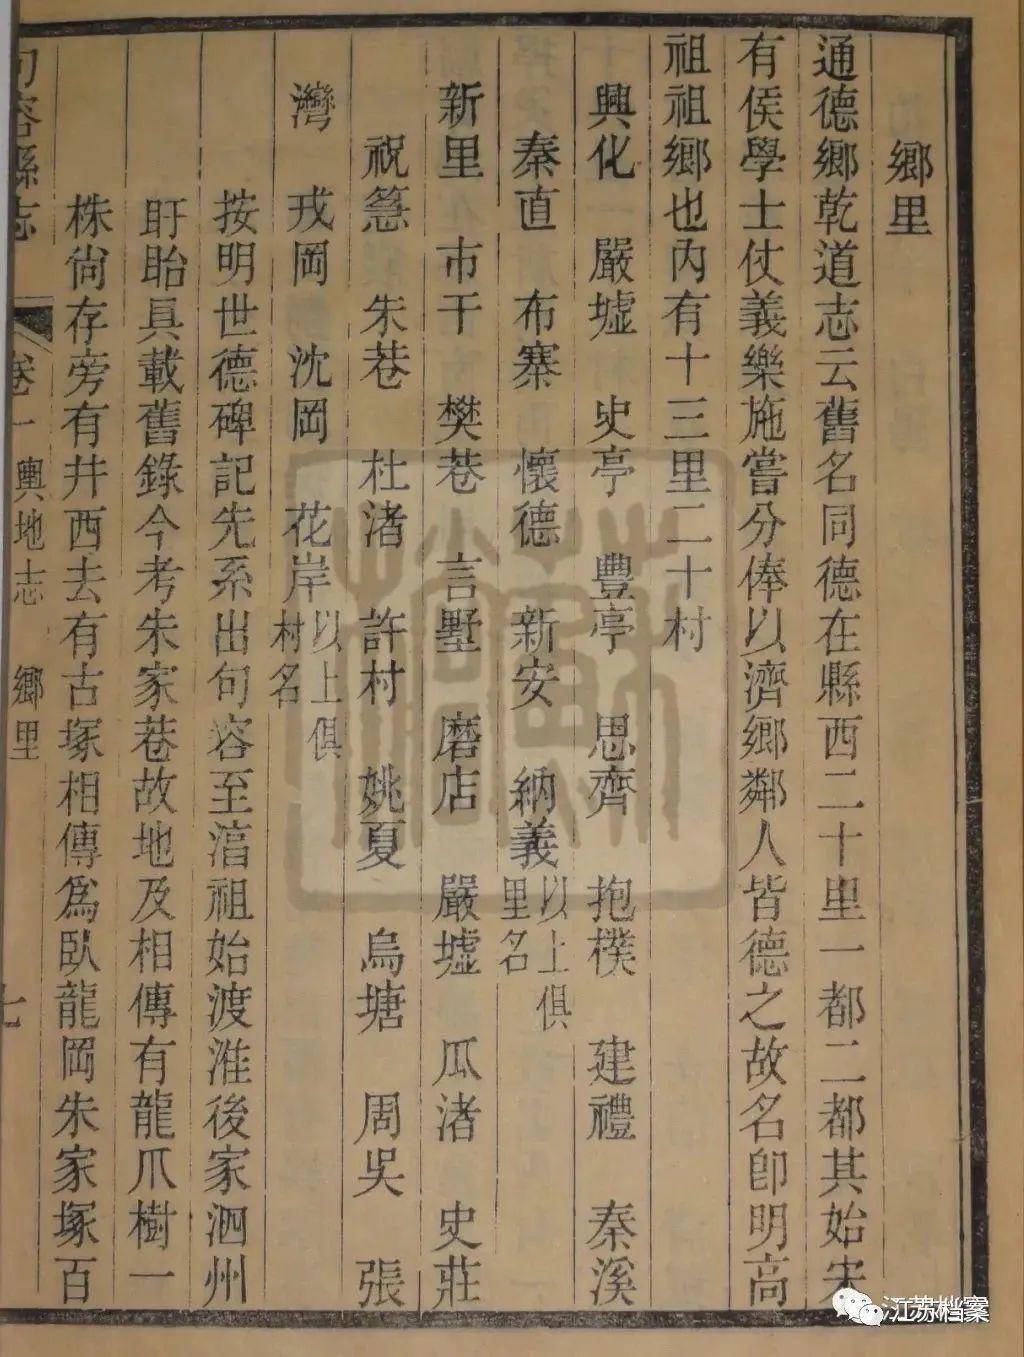 鄉里
通德鄉乾道志云舊名同德在縣西二十里一都二都其始宋
有侯學士仗義樂施嘗分俸以濟鄉鄰人皆德之故名卽明高
祖祖鄉也內有十三里二十村
興化　嚴墟　史亭　豐亭　思齊　抱樸　建禮　秦溪
秦直　布寨　懷德　新安　納義　以上俱
里名
新里　市干　樊巷　言墅　磨店　嚴墟　瓜渚　史莊
祝慈　朱巷　杜渚　許村　姚夏　烏塘　周吳　張
灣　戎岡　沈岡　花岸　以上俱
村名
按明世德碑記先系出句容至淯祖始渡淮後家泗州
盱眙具載舊錄今考朱家巷故地及相傳有龍爪樹一
株尙存旁有井西去有古塚相傳爲臥龍岡朱家塚百
句容縣志　卷一　輿地志　鄉里　七
江苏档案